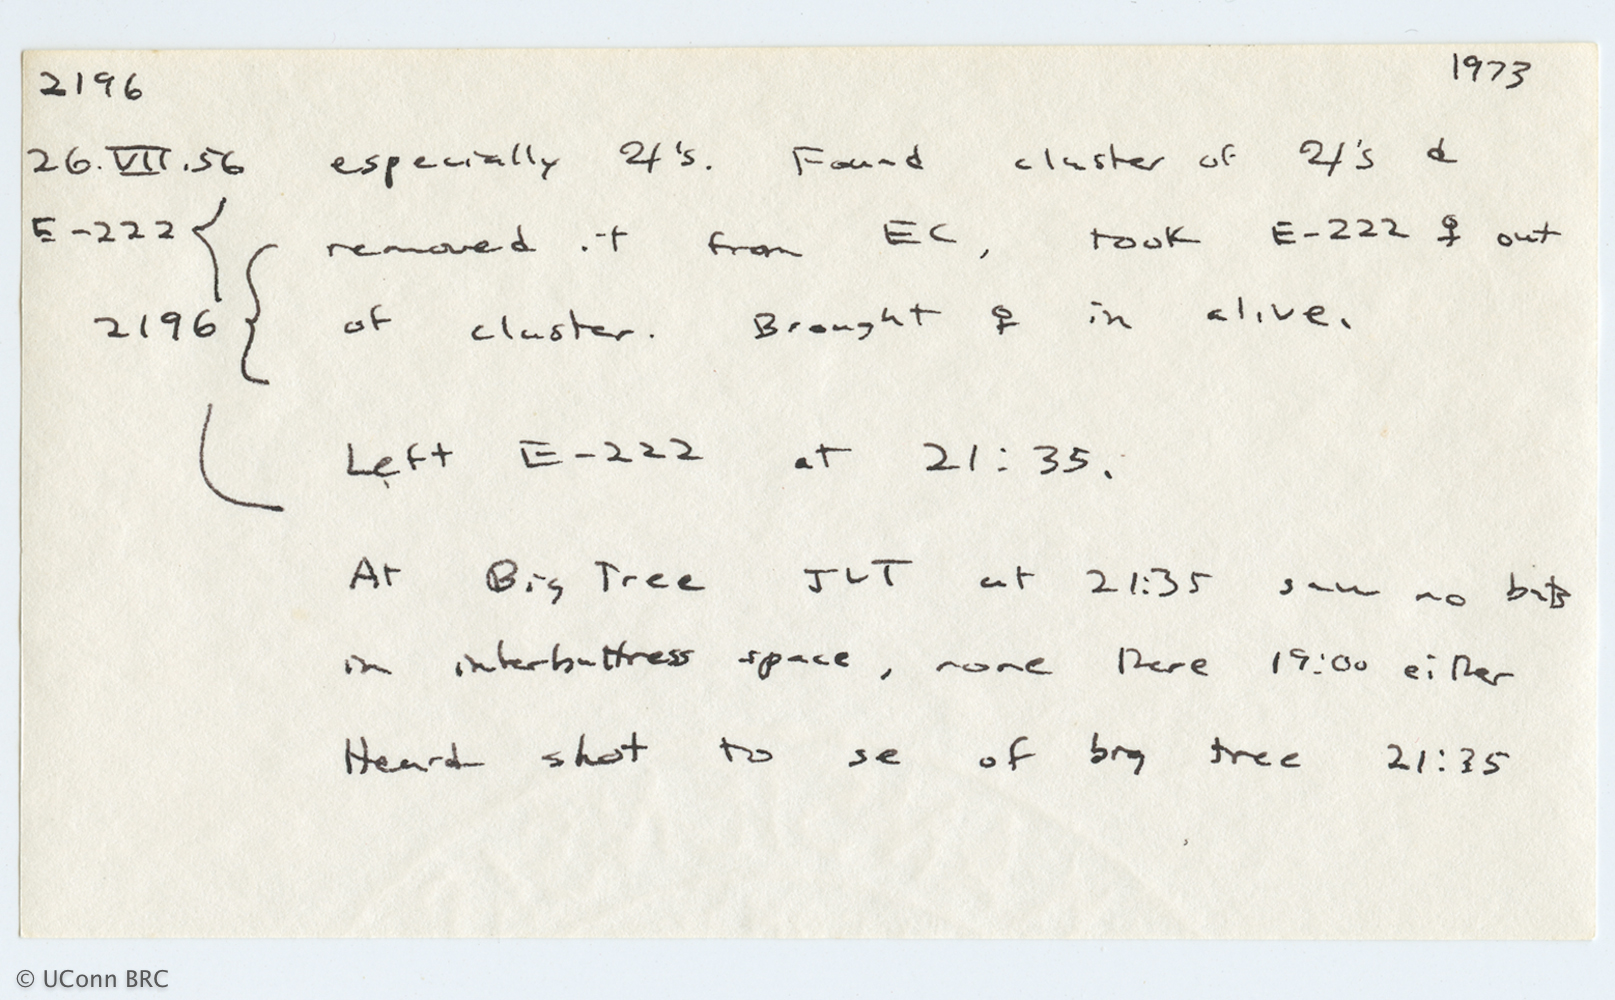 2196 1973
26.VII.56 especially 4's. Found cluster of 4's &
E-222 removed it from EC, took E-222 ♀ out
2196 of cluster. Brought ♀ in alive.
Left E-222 at 21:35.
At Big Tree JLT at 21:35 saw no bats
in interbuttress space, none there 19:00 either
Heard shot to se of big tree 21:35
© UConn BRC